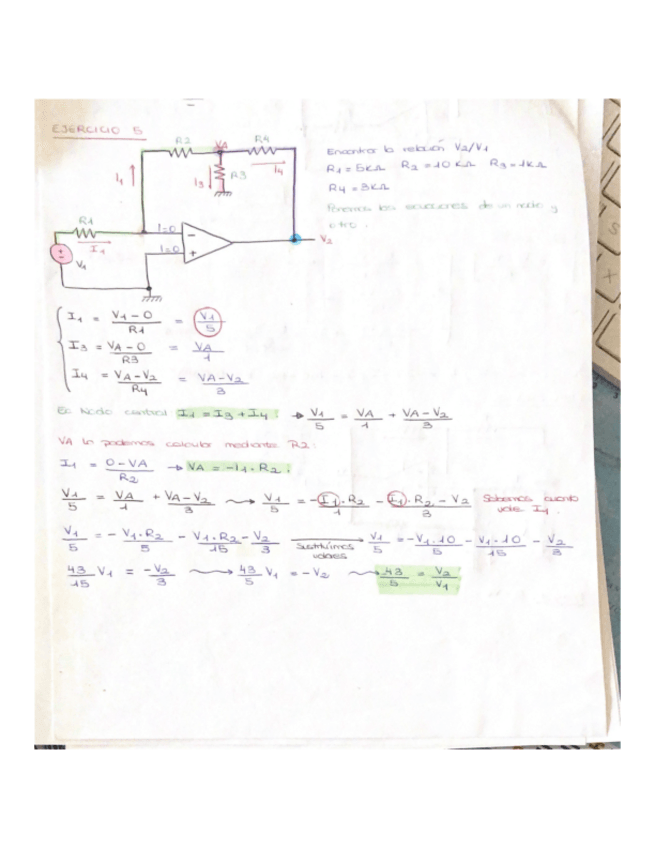 EJERCICIO 5
R2 VA R4
I1 I3 R3 I4
R1
I1
I=0
I=0
V1
V2
Encontrar la relación V2/V1
R1 = 5KΩ R2 = 10 KΩ R3 = 1KΩ
R4 = 3KΩ
Ponemos las ecuaciones de un nodo y
otro.
I1 = (V1 - 0)/R1 = V1/5
I3 = (VA - 0)/R3 = VA/1
I4 = (VA - V2)/R4 = (VA - V2)/3
Ec Nodo central I1 = I3 + I4 : → V1/5 = VA/1 + (VA - V2)/3
VA lo podemos calcular mediante R2:
I1 = (0 - VA)/R2 → VA = -I1 · R2 :
V1/5 = VA/1 + (VA - V2)/3 → V1/5 = -I1 · R2/1 - (I1 · R2 - V2)/3 Sabemos cuanto vale I1.
V1/5 = - V1·R2/5 - V1·R2/15 - V2/3 Sustituimos valores → V1/5 = -V1·10/5 - V1·10/15 - V2/3
43/15 V1 = -V2/3 → 43/5 V1 = -V2 → 43/5 = V2/V1